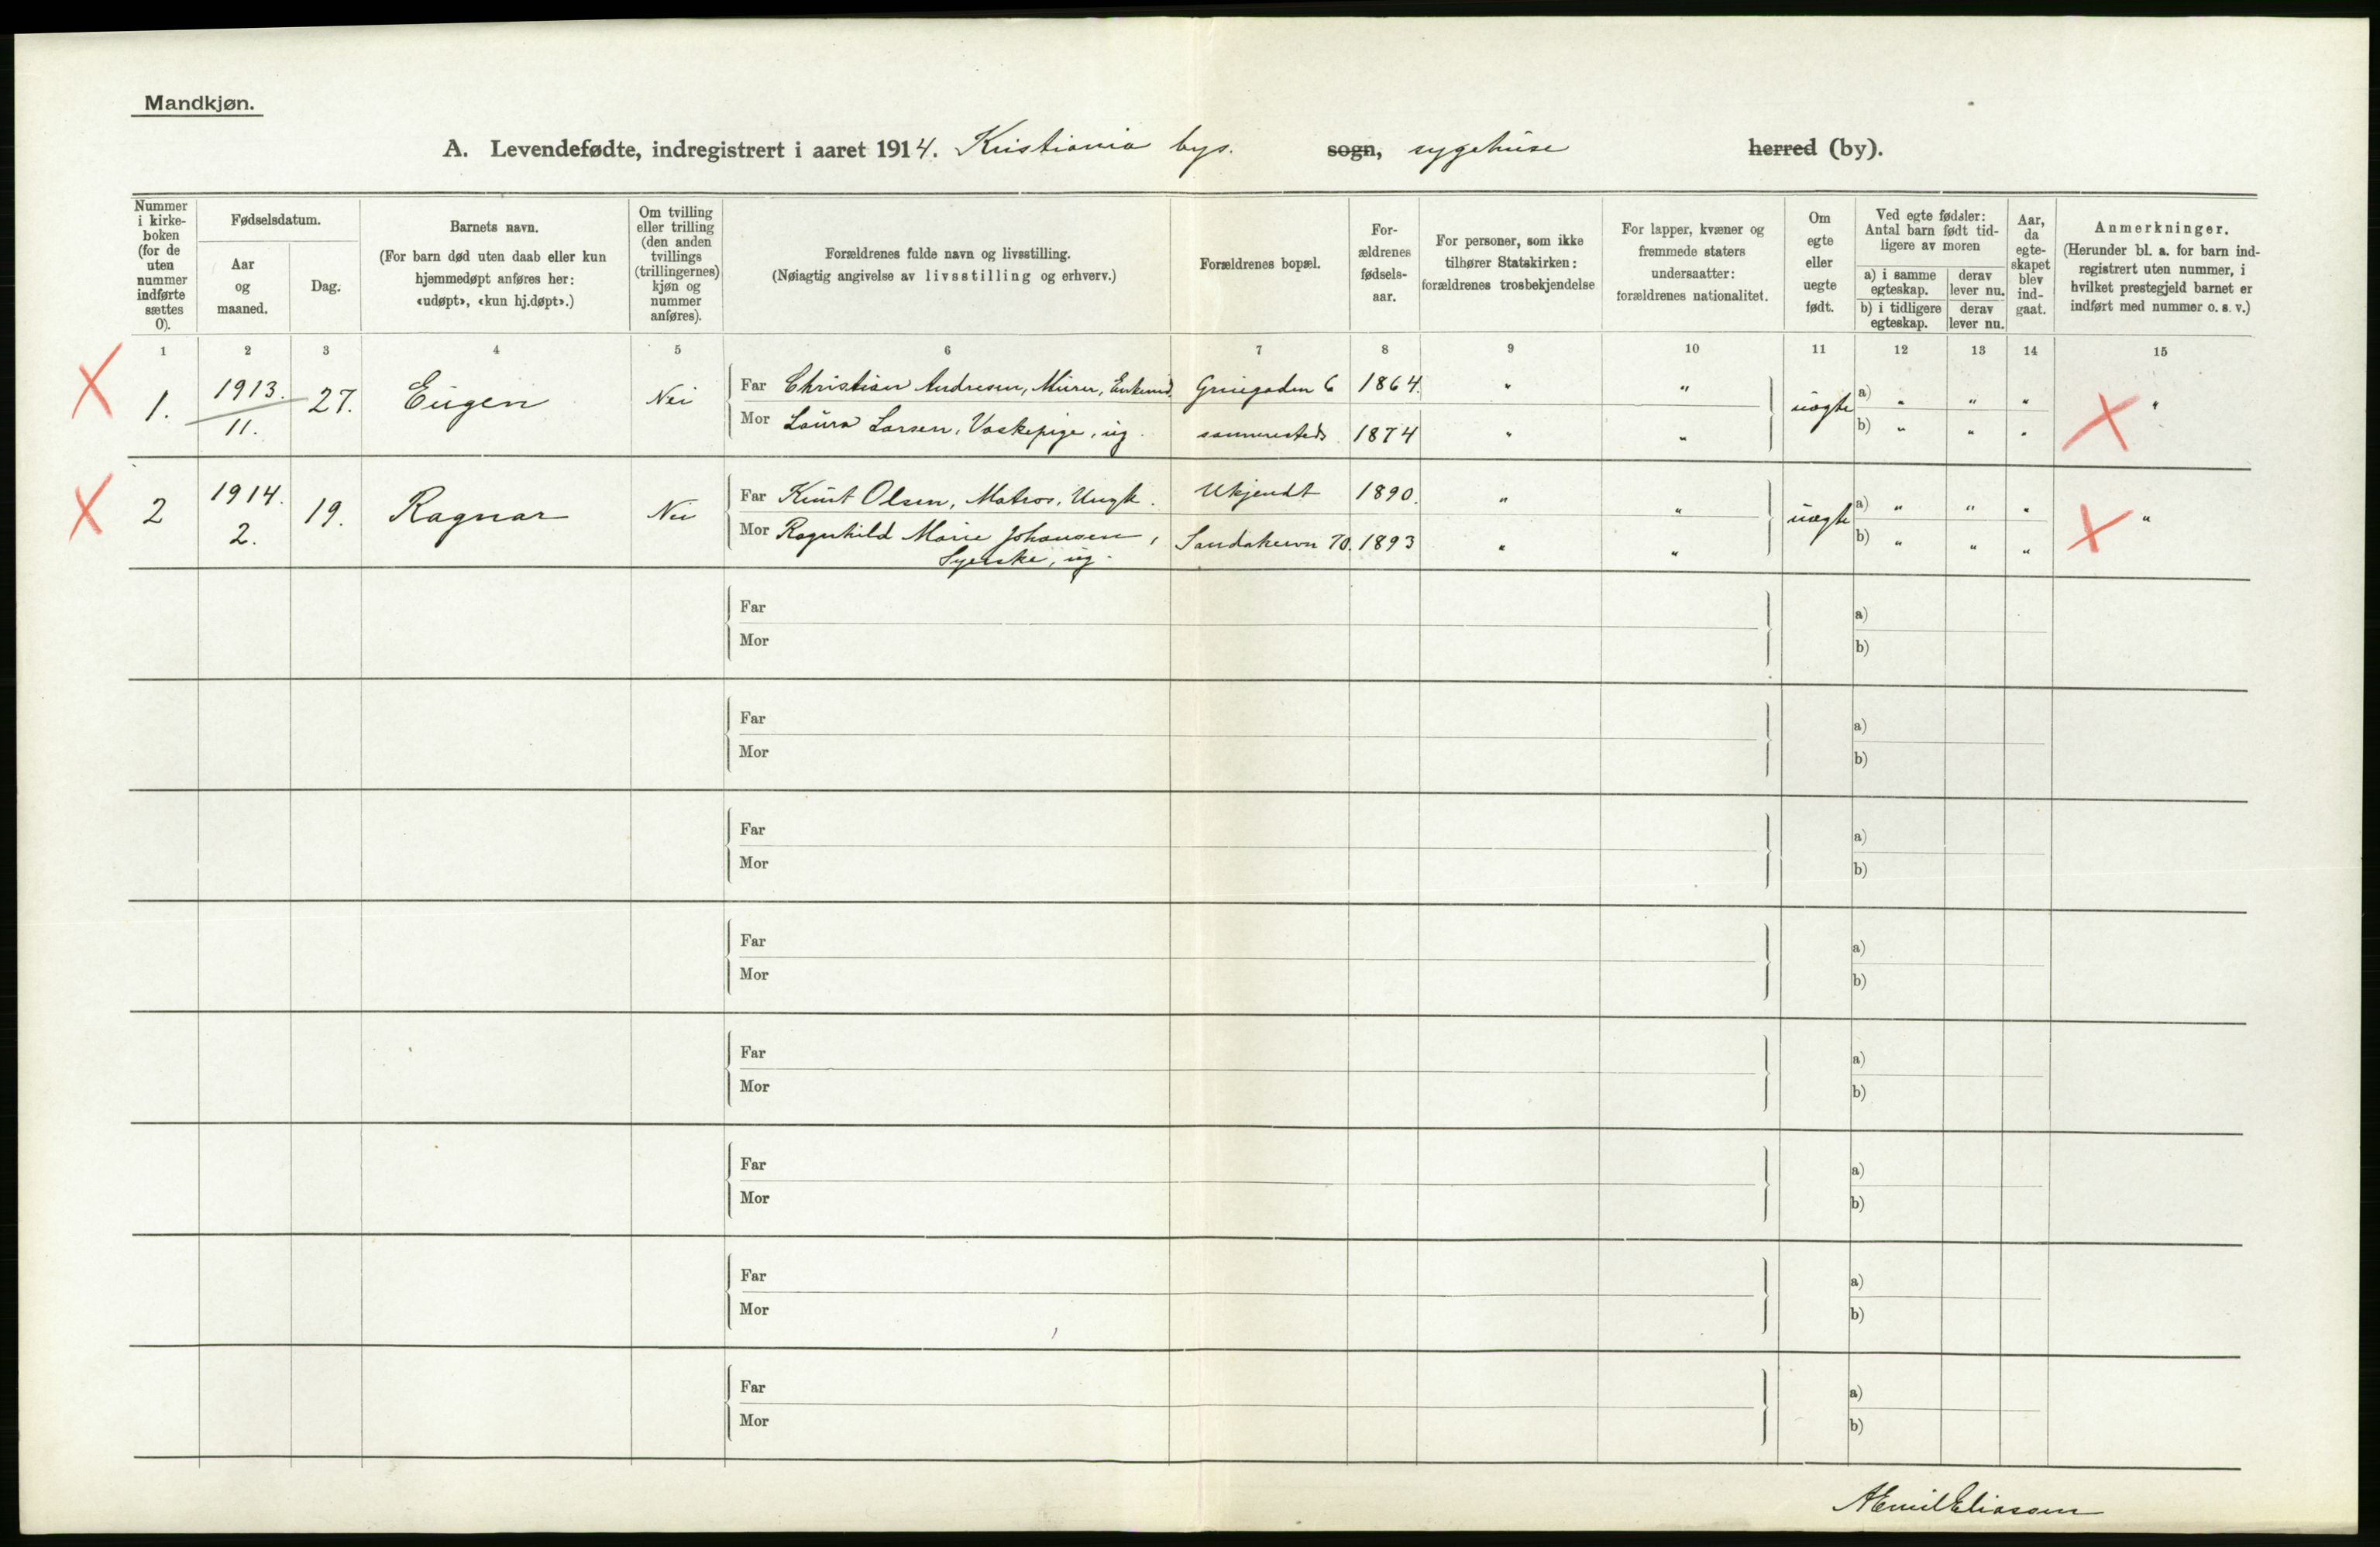 Mandkjøn.
A. Levendefødte, indregistrert i aaret 1914. Kristiania bys. sogn, sygehuse herred (by).
Nummer i kirke-boken (for de uten nummer indførte sættes 0).
Fødselsdatum.
Aar og maaned.
Dag.
Barnets navn.
(For barn død uten daab eller kun hjemmedøpt anføres her: «udøpt», «kun hj.døpt».)
Om tvilling eller trilling (den anden tvillings (trillingernes) kjøn og nummer anføres).
Forældrenes fulde navn og livsstilling.
(Nøiagtig angivelse av livsstilling og erhverv.)
Forældrenes bopæl.
For-ældrenes fødsels-aar.
For personer, som ikke tilhører Statskirken: forældrenes trosbekjendelse
For lapper, kvæner og fremmede staters undersaatter: forældrenes nationalitet.
Om egte eller uegte født.
Ved egte fødsler: Antal barn født tid-ligere av moren
a) i samme egteskap. derav lever nu.
b) i tidligere egteskap. derav lever nu.
Aar, da egte-skapet blev ind-gaat.
Anmerkninger.
(Herunder bl. a. for barn ind-registrert uten nummer, i hvilket prestegjeld barnet er indført med nummer o. s. v.)
1 2 3 4 5 6 7 8 9 10 11 12 13 14 15
1. 1913. 11. 27. Eugen Nei
Far Christian Andresen, Murer, Enkemd. Grüegaden 6 1864. " " uægte a) " " " "
Mor Laura Larsen, Vaskepige, ug. sammesteds 1874 " " b) " " "
2 1914. 2. 19. Ragnar Nei
Far Knut Olsen, Matros, Ungk. Ukjendt 1890. " " uægte a) " " " "
Mor Ragnhild Marie Johansen, Syerske, ug. Sandakervn 70. 1893 " " b) " " "
Far a)
Mor b)
Far a)
Mor b)
Far a)
Mor b)
Far a)
Mor b)
Far a)
Mor b)
Far a)
Mor b)
Far a)
Mor b)
Far a)
Mor b)
AEmil Eliassen